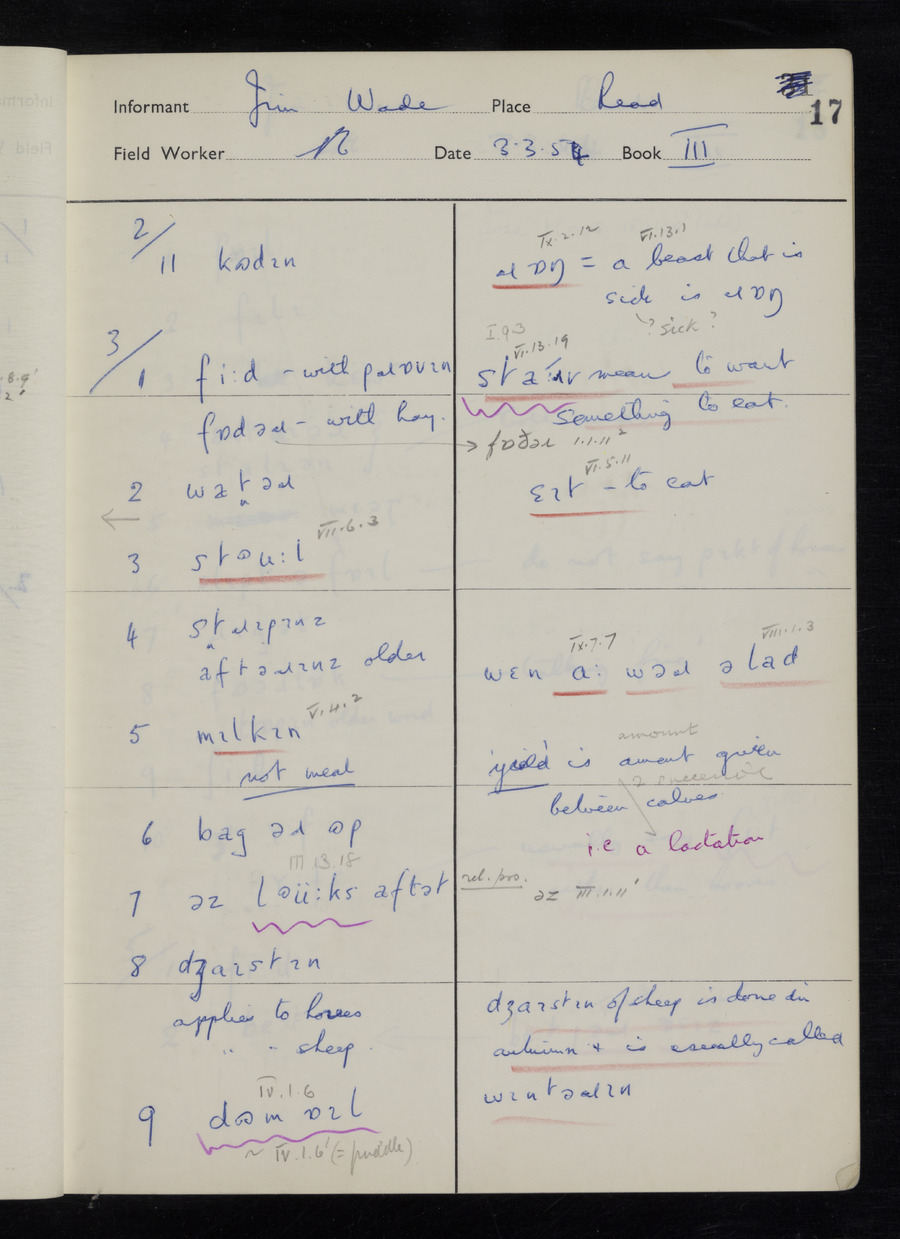 17
Informant Jim Wade Place Read
Field Worker Date 3.3.54 Book III
2/
11 kɷdɪn
3/
1 fi:d - with pəɹɒvɪn
fɒdəɹ - with hay.
2 watəɹ
VII.6.3
3 stɷu:l
4 stɹɪpɪnz
aftəɹɪnz older
V.4.2
5 mɪlkɪn
not meal
6 bag əɹ ɷp
III 13.18
7 əz lɷü:ks aftət
8 dʒaɪstɪn
applies to horses
" " sheep.
IV.1.6
9 dɷm ɒɪl
~ IV.1.6' (= puddle)
IX.2.12 VI.13.1
ɹɒŋ = a beast that is
sick is ɹɒŋ
? sick ?
I.9.3
VI.13.19
mean to want
something to eat.
→ fɒðəɹ 1.1.11²
VI.5.11
ɛɪt - to eat
IX.7.7 VIII.1.3
wɛn a: wəɹ ə lad
amount
yield is amount given
between calves
i.e a lactation
rel. pro.
əz III.1.11'
dʒaɪstɪn of sheep is done in
autumn + is usually called
wɪntəɹɪn